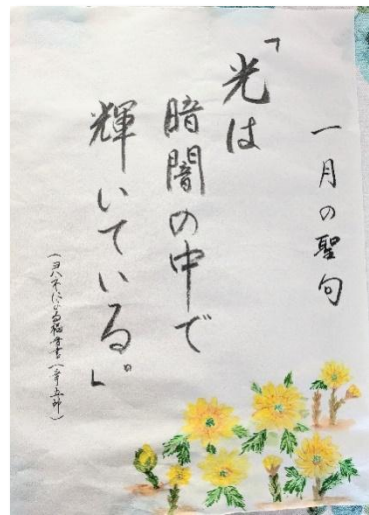 一月の聖句
「光は
暗闇の中で
輝いている。」
(ヨハネによる福音書一章五節)